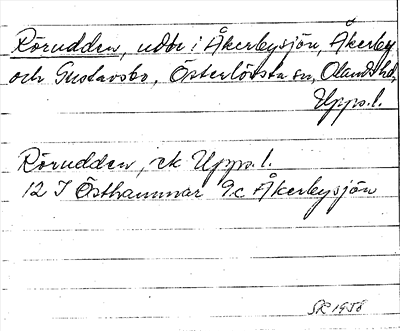 Rörudden, udde i Åkerbysjön, Åkerby
och Gustavsbo, Österlövsta sn, Olands hd,
Upps. l.
Rörudden, ek Upps. l.
12 I Östhammar 9c Åkerbysjön
SR 1958